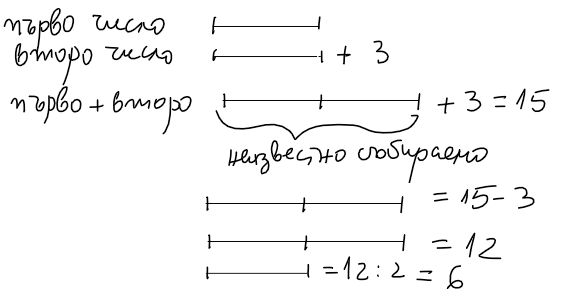 първо число
второ число + 3
първо + второ + 3 = 15
неизвестно събираемо
= 15 - 3
= 12
= 12 : 2 = 6